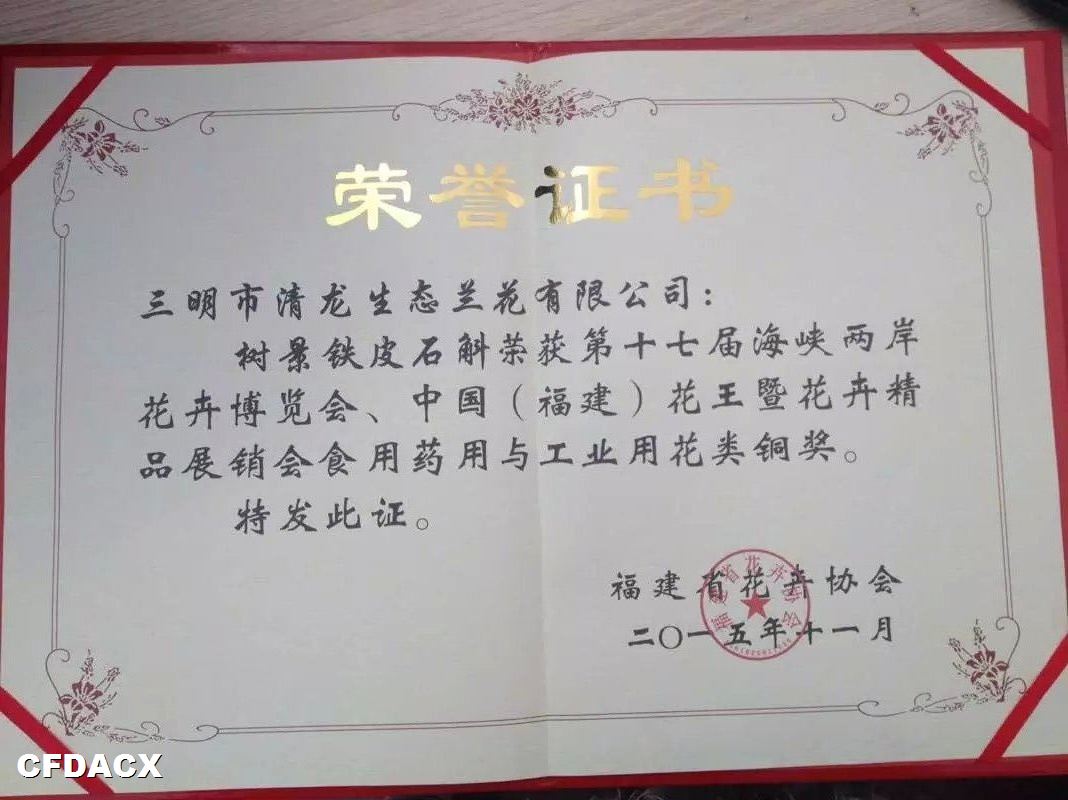 荣誉证书
三明市清龙生态兰花有限公司：
树景铁皮石斛荣获第十七届海峡两岸
花卉博览会、中国（福建）花王暨花卉精
品展销会食用药用与工业用花类铜奖。
特发此证。
福建省花卉协会
二〇一五年十一月
福建省花卉协会
CFDACX